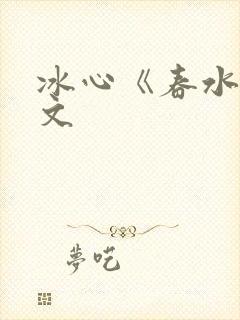 冰心《春水
文
夢吃